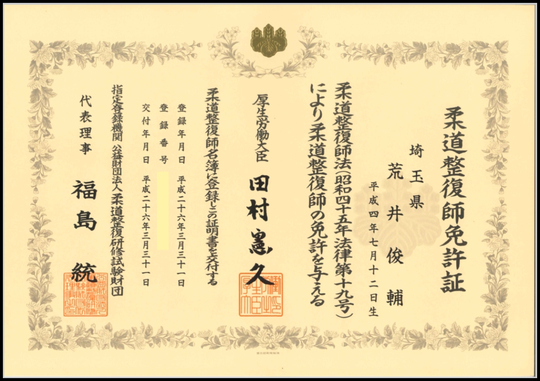 柔道整復師免許証
埼玉県
荒井俊輔
平成四年七月十二日生
柔道整復師法(昭和四十五年法律第十九号)
により柔道整復師の免許を与える
厚生労働大臣 田村憲久
柔道整復師名簿に登録しこの証明書を交付する
登録年月日 平成二十六年三月三十一日
登録番号
交付年月日 平成二十六年三月三十一日
指定登録機関 公益財団法人柔道整復研修試験財団
代表理事 福島統